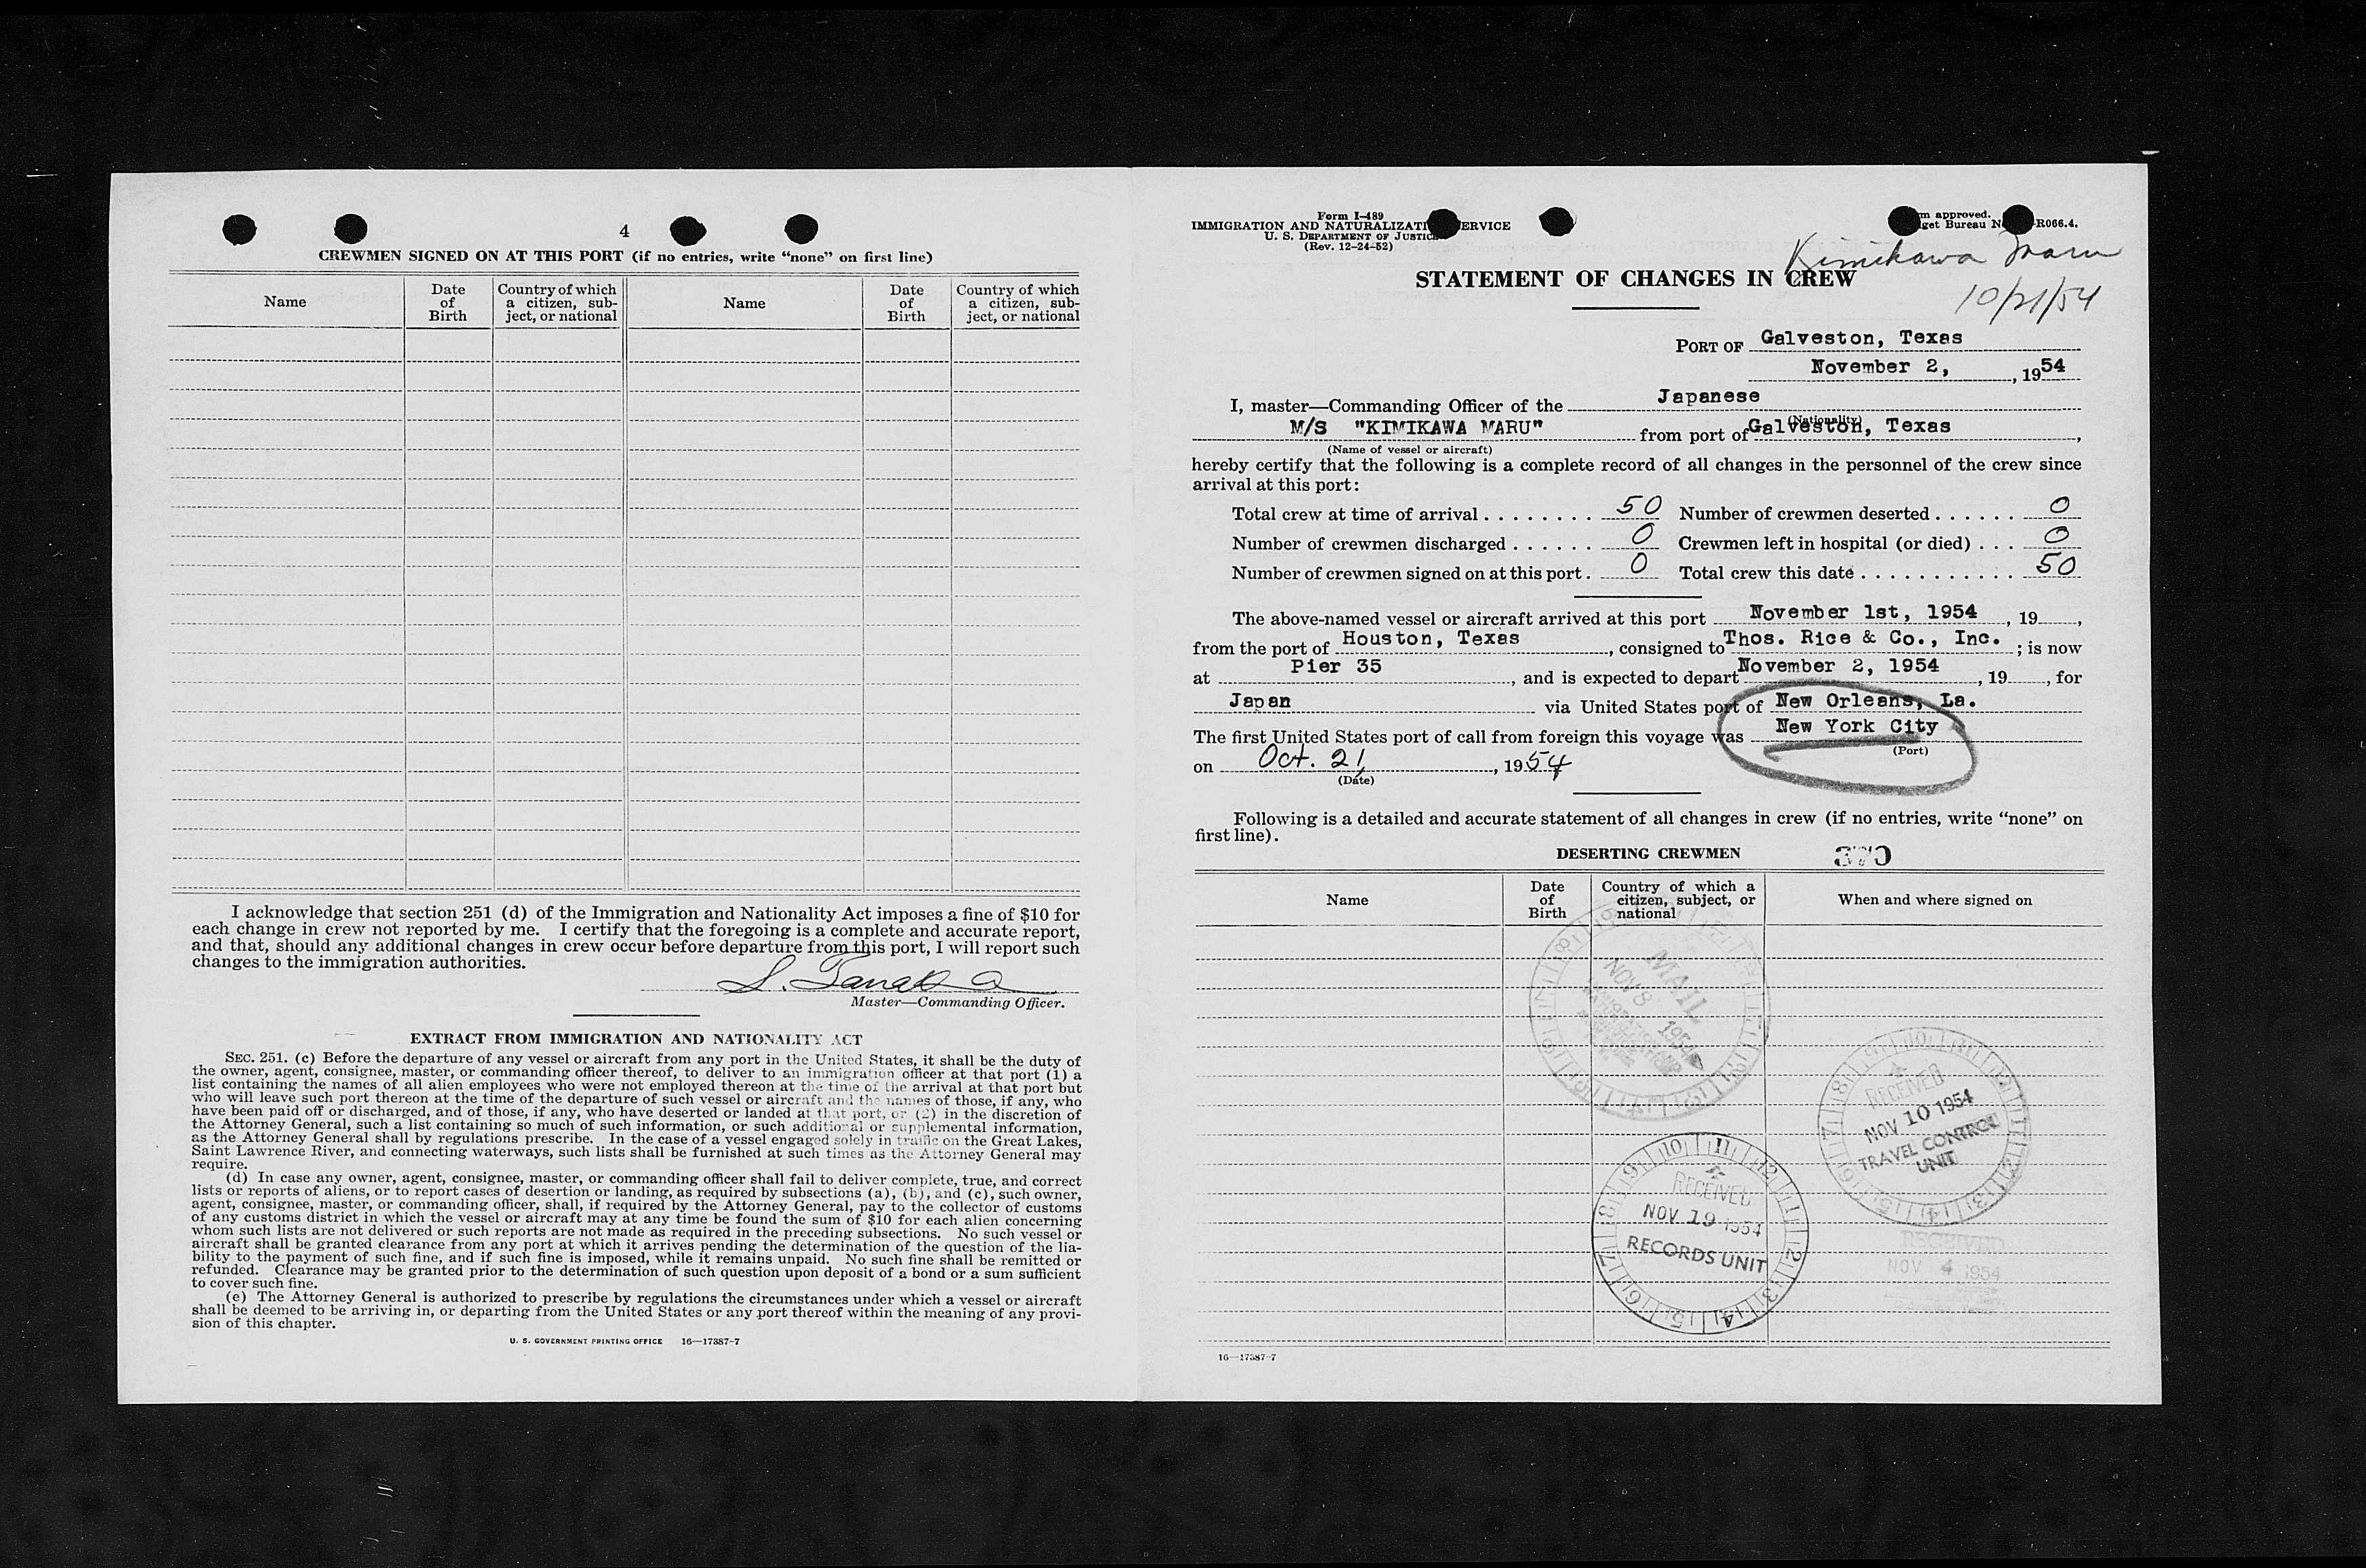 4
CREWMEN SIGNED ON AT THIS PORT (if no entries, write “none” on first line)
Name
Date of Birth
Country of which a citizen, sub-ject, or national
Name
Date of Birth
Country of which a citizen, sub-ject, or national
I acknowledge that section 251 (d) of the Immigration and Nationality Act imposes a fine of $10 for
each change in crew not reported by me. I certify that the foregoing is a complete and accurate report,
and that, should any additional changes in crew occur before departure from this port, I will report such
changes to the immigration authorities.
S. Tanaka
Master—Commanding Officer.
EXTRACT FROM IMMIGRATION AND NATIONALITY ACT
SEC. 251. (c) Before the departure of any vessel or aircraft from any port in the United States, it shall be the duty of
the owner, agent, consignee, master, or commanding officer thereof, to deliver to an immigration officer at that port (1) a
list containing the names of all alien employees who were not employed thereon at the time of the arrival at that port but
who will leave such port thereon at the time of the departure of such vessel or aircraft and the names of those, if any, who
have been paid off or discharged, and of those, if any, who have deserted or landed at that port, or (2) in the discretion of
the Attorney General, such a list containing so much of such information, or such additional or supplemental information,
as the Attorney General shall by regulations prescribe. In the case of a vessel engaged solely in traffic on the Great Lakes,
Saint Lawrence River, and connecting waterways, such lists shall be furnished at such times as the Attorney General may
require.
(d) In case any owner, agent, consignee, master, or commanding officer shall fail to deliver complete, true, and correct
lists or reports of aliens, or to report cases of desertion or landing, as required by subsections (a), (b), and (c), such owner,
agent, consignee, master, or commanding officer, shall, if required by the Attorney General, pay to the collector of customs
of any customs district in which the vessel or aircraft may at any time be found the sum of $10 for each alien concerning
whom such lists are not delivered or such reports are not made as required in the preceding subsections. No such vessel or
aircraft shall be granted clearance from any port at which it arrives pending the determination of the question of the lia-
bility to the payment of such fine, and if such fine is imposed, while it remains unpaid. No such fine shall be remitted or
refunded. Clearance may be granted prior to the determination of such question upon deposit of a bond or a sum sufficient
to cover such fine.
(e) The Attorney General is authorized to prescribe by regulations the circumstances under which a vessel or aircraft
shall be deemed to be arriving in, or departing from the United States or any port thereof within the meaning of any provi-
sion of this chapter.
U. S. GOVERNMENT PRINTING OFFICE 16—17387-7
Form I-489
IMMIGRATION AND NATURALIZATI ERVICE
U. S. DEPARTMENT OF JUSTIC
(Rev. 12-24-52)
m approved.
get Bureau N R066.4.
Kimikawa Maru
10/21/54
STATEMENT OF CHANGES IN CREW
PORT OF Galveston, Texas
November 2, , 1954
I, master—Commanding Officer of the Japanese
(Nationality)
M/S "KIMIKAWA MARU" from port of Galveston, Texas ,
(Name of vessel or aircraft)
hereby certify that the following is a complete record of all changes in the personnel of the crew since
arrival at this port:
Total crew at time of arrival . . . . . . . . 50 Number of crewmen deserted . . . . . . 0
Number of crewmen discharged . . . . . . 0 Crewmen left in hospital (or died) . . . 0
Number of crewmen signed on at this port . 0 Total crew this date . . . . . . . . . . . 50
The above-named vessel or aircraft arrived at this port November 1st, 1954 , 19 ,
from the port of Houston, Texas , consigned to Thos. Rice & Co., Inc. ; is now
at Pier 35 , and is expected to depart November 2, 1954 , 19 , for
Japan via United States port of New Orleans, La.
The first United States port of call from foreign this voyage was New York City
(Port)
on Oct. 21, , 1954
(Date)
Following is a detailed and accurate statement of all changes in crew (if no entries, write “none” on
first line).
DESERTING CREWMEN
370
Name
Date of Birth
Country of which a citizen, subject, or national
When and where signed on
MAIL
NOV 8 1954
RECEIVED
NOV 10 1954
TRAVEL CONTROL
UNIT
RECEIVED
NOV 19 1954
RECORDS UNIT
RECEIVED
NOV 4 1954
16—17387-7